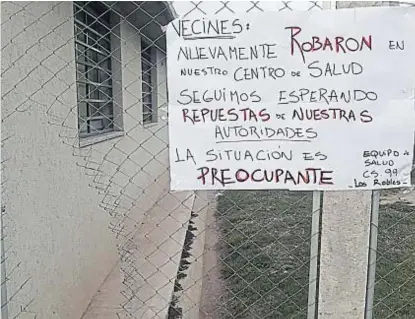 VECINES:
NUEVAMENTE ROBARON EN
NUESTRO CENTRO DE SALUD
SEGUIMOS ESPERANDO
REPUESTAS DE NUESTRAS
AUTORIDADES
LA SITUACIÓN ES
PREOCUPANTE
EQUIPO DE
SALUD
CS. 99
- Los Robles -